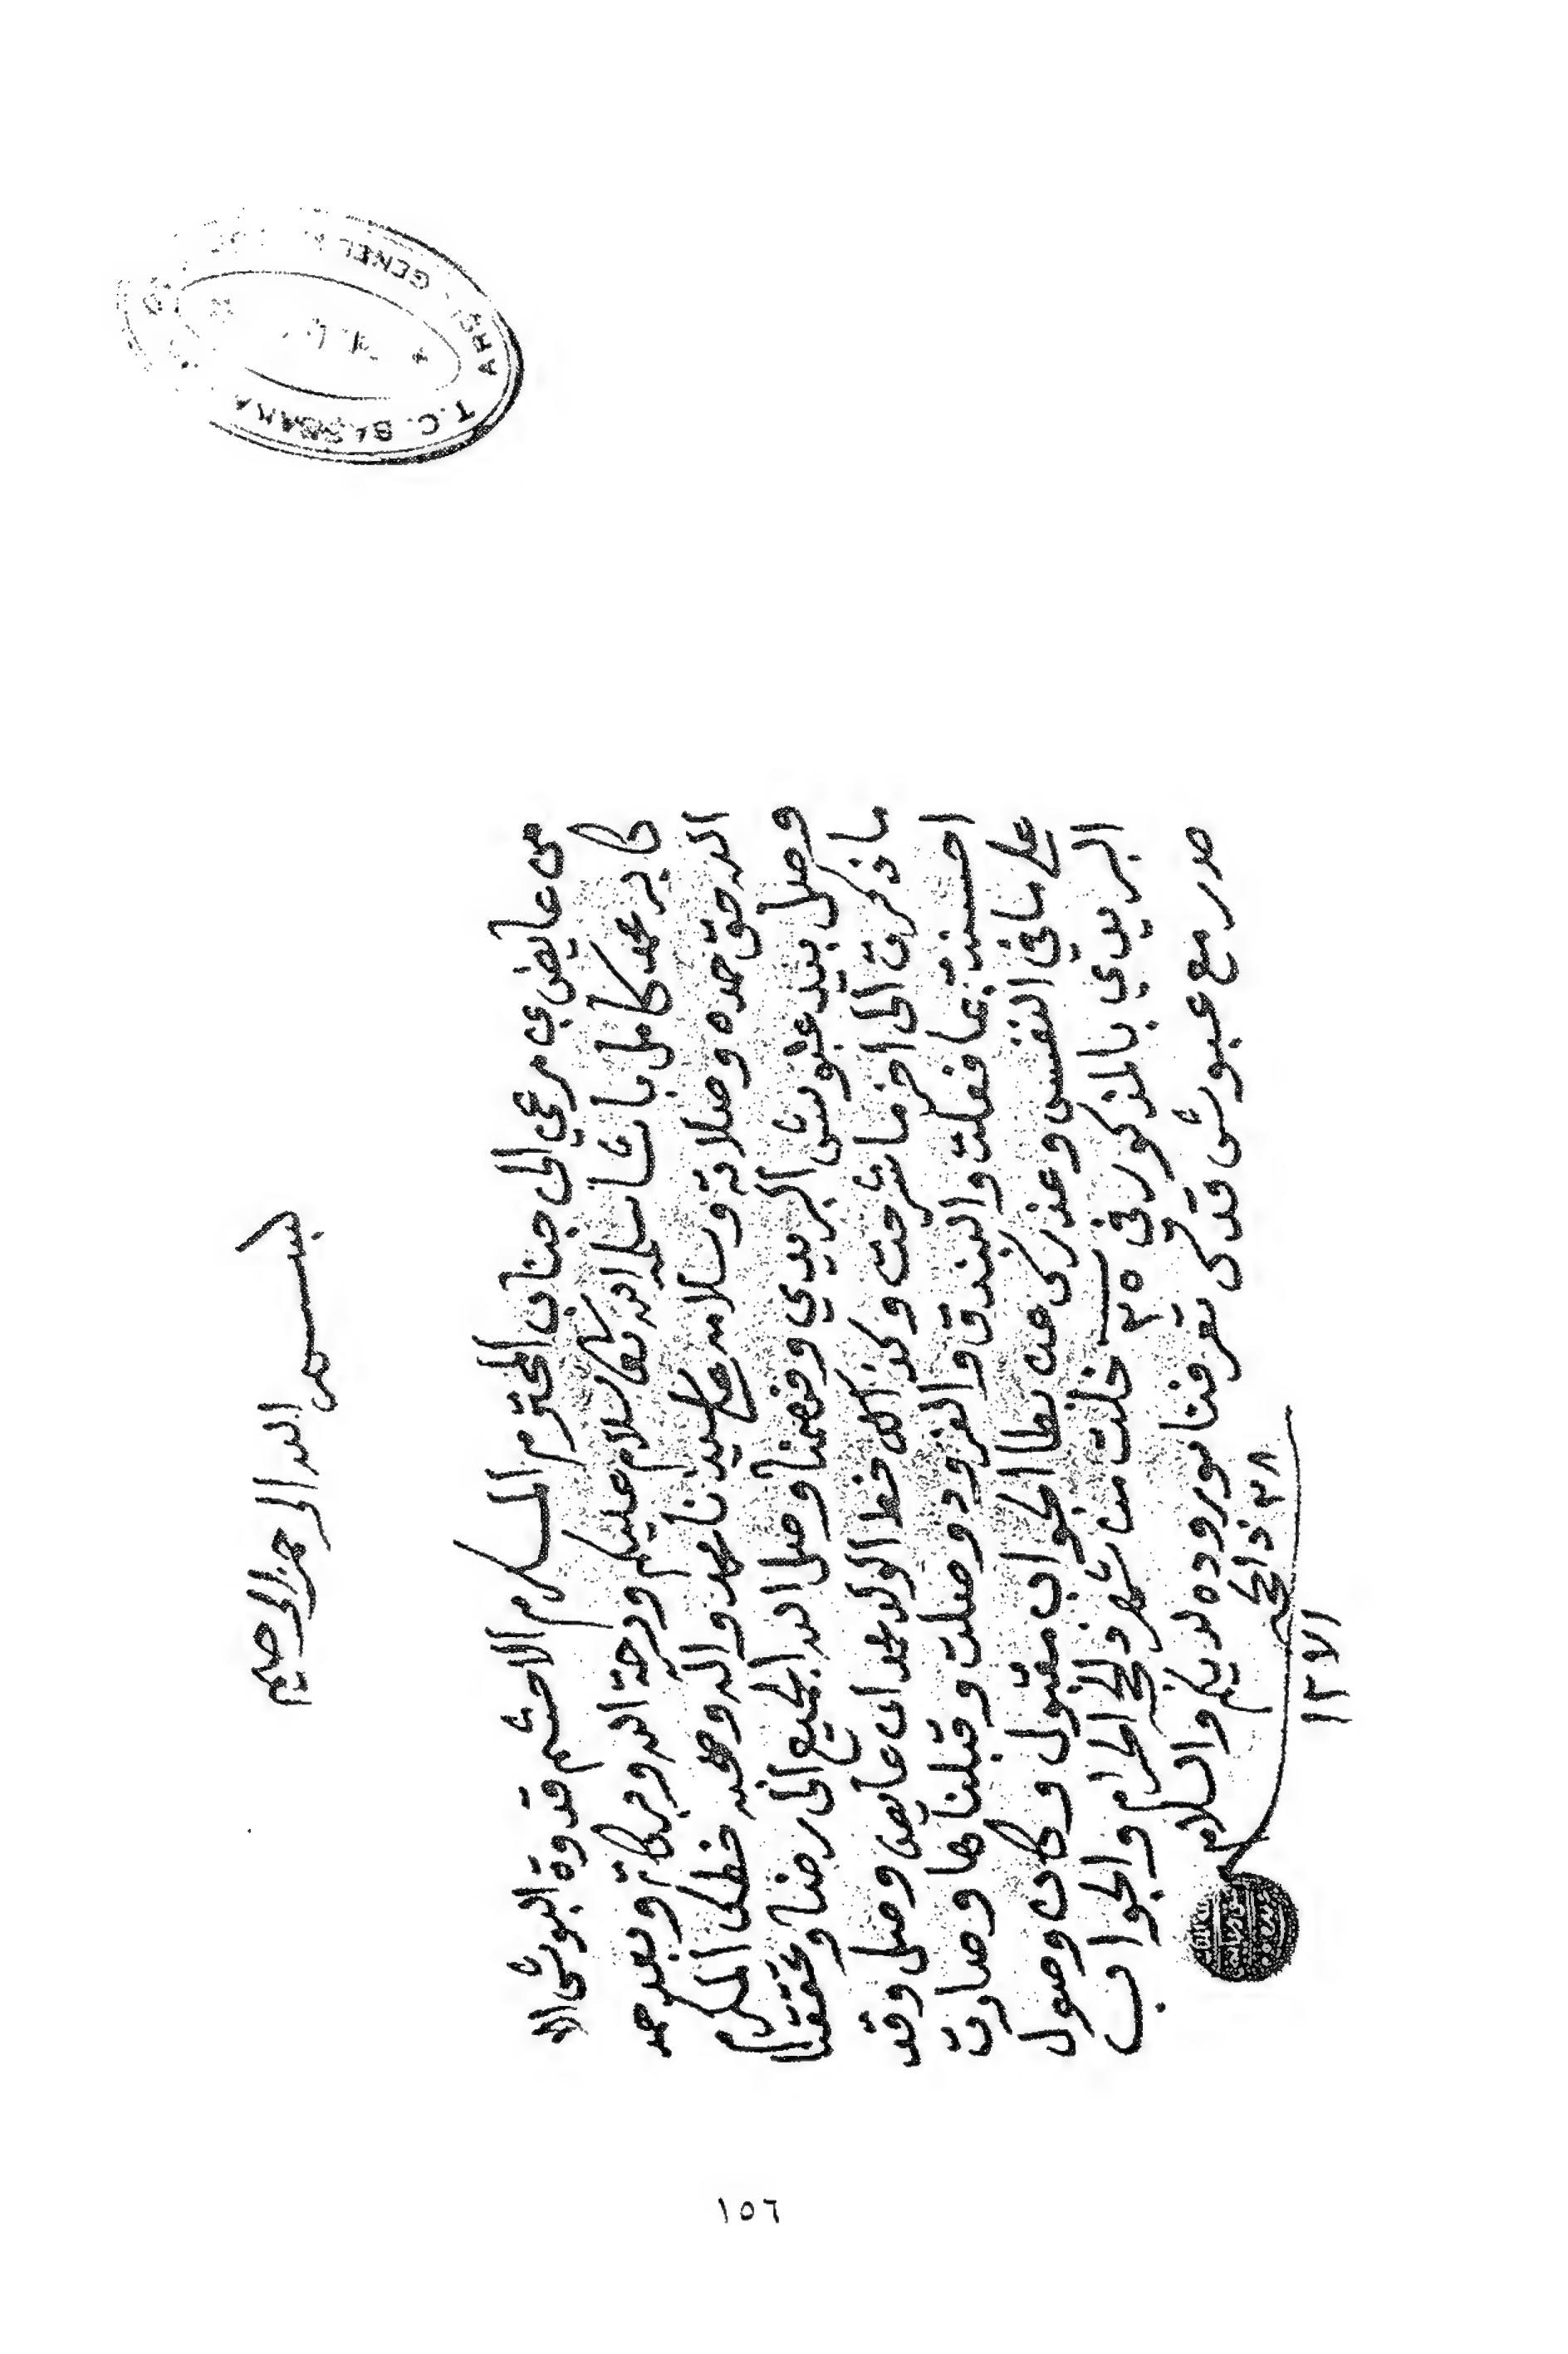 بسم الله الرحمن الرحيم
من عايض بن مرعي الى جناب المحترم المكرم الاحشم قدوة البوش
محمد كامل باشا سلمه الله تعا سلام عليكم ورحمة الله وبركاته وبعد حمد
الله حق حمده وصلاته وسلامه على سيدنا محمد واله وصحبه خطكم المكرم
وصل بيد عبوش البريدي وفهمنا وصل الله الجميع الى رضا وتحققنا
ما ذكرت الى اخر ما شرحت وكذالك خط الولد محمد ابن عايض وصل وقد
احسنت بما فعلت والبندق والفرود وصلت وقبلناها وصارت
على ما في النفس وعذركم من بطا الجواب مقبول وكان وصول
البريدي بالمذكور في ٢٥ خلت من شهر ذالحجة الحرام والجواب
صدر مع عبوش قدكم تعرفنا بوروده لديكم والسلام
٢٨ ذالحجه
١٥٦
T.C. BAŞBAKANLIK
GENEL